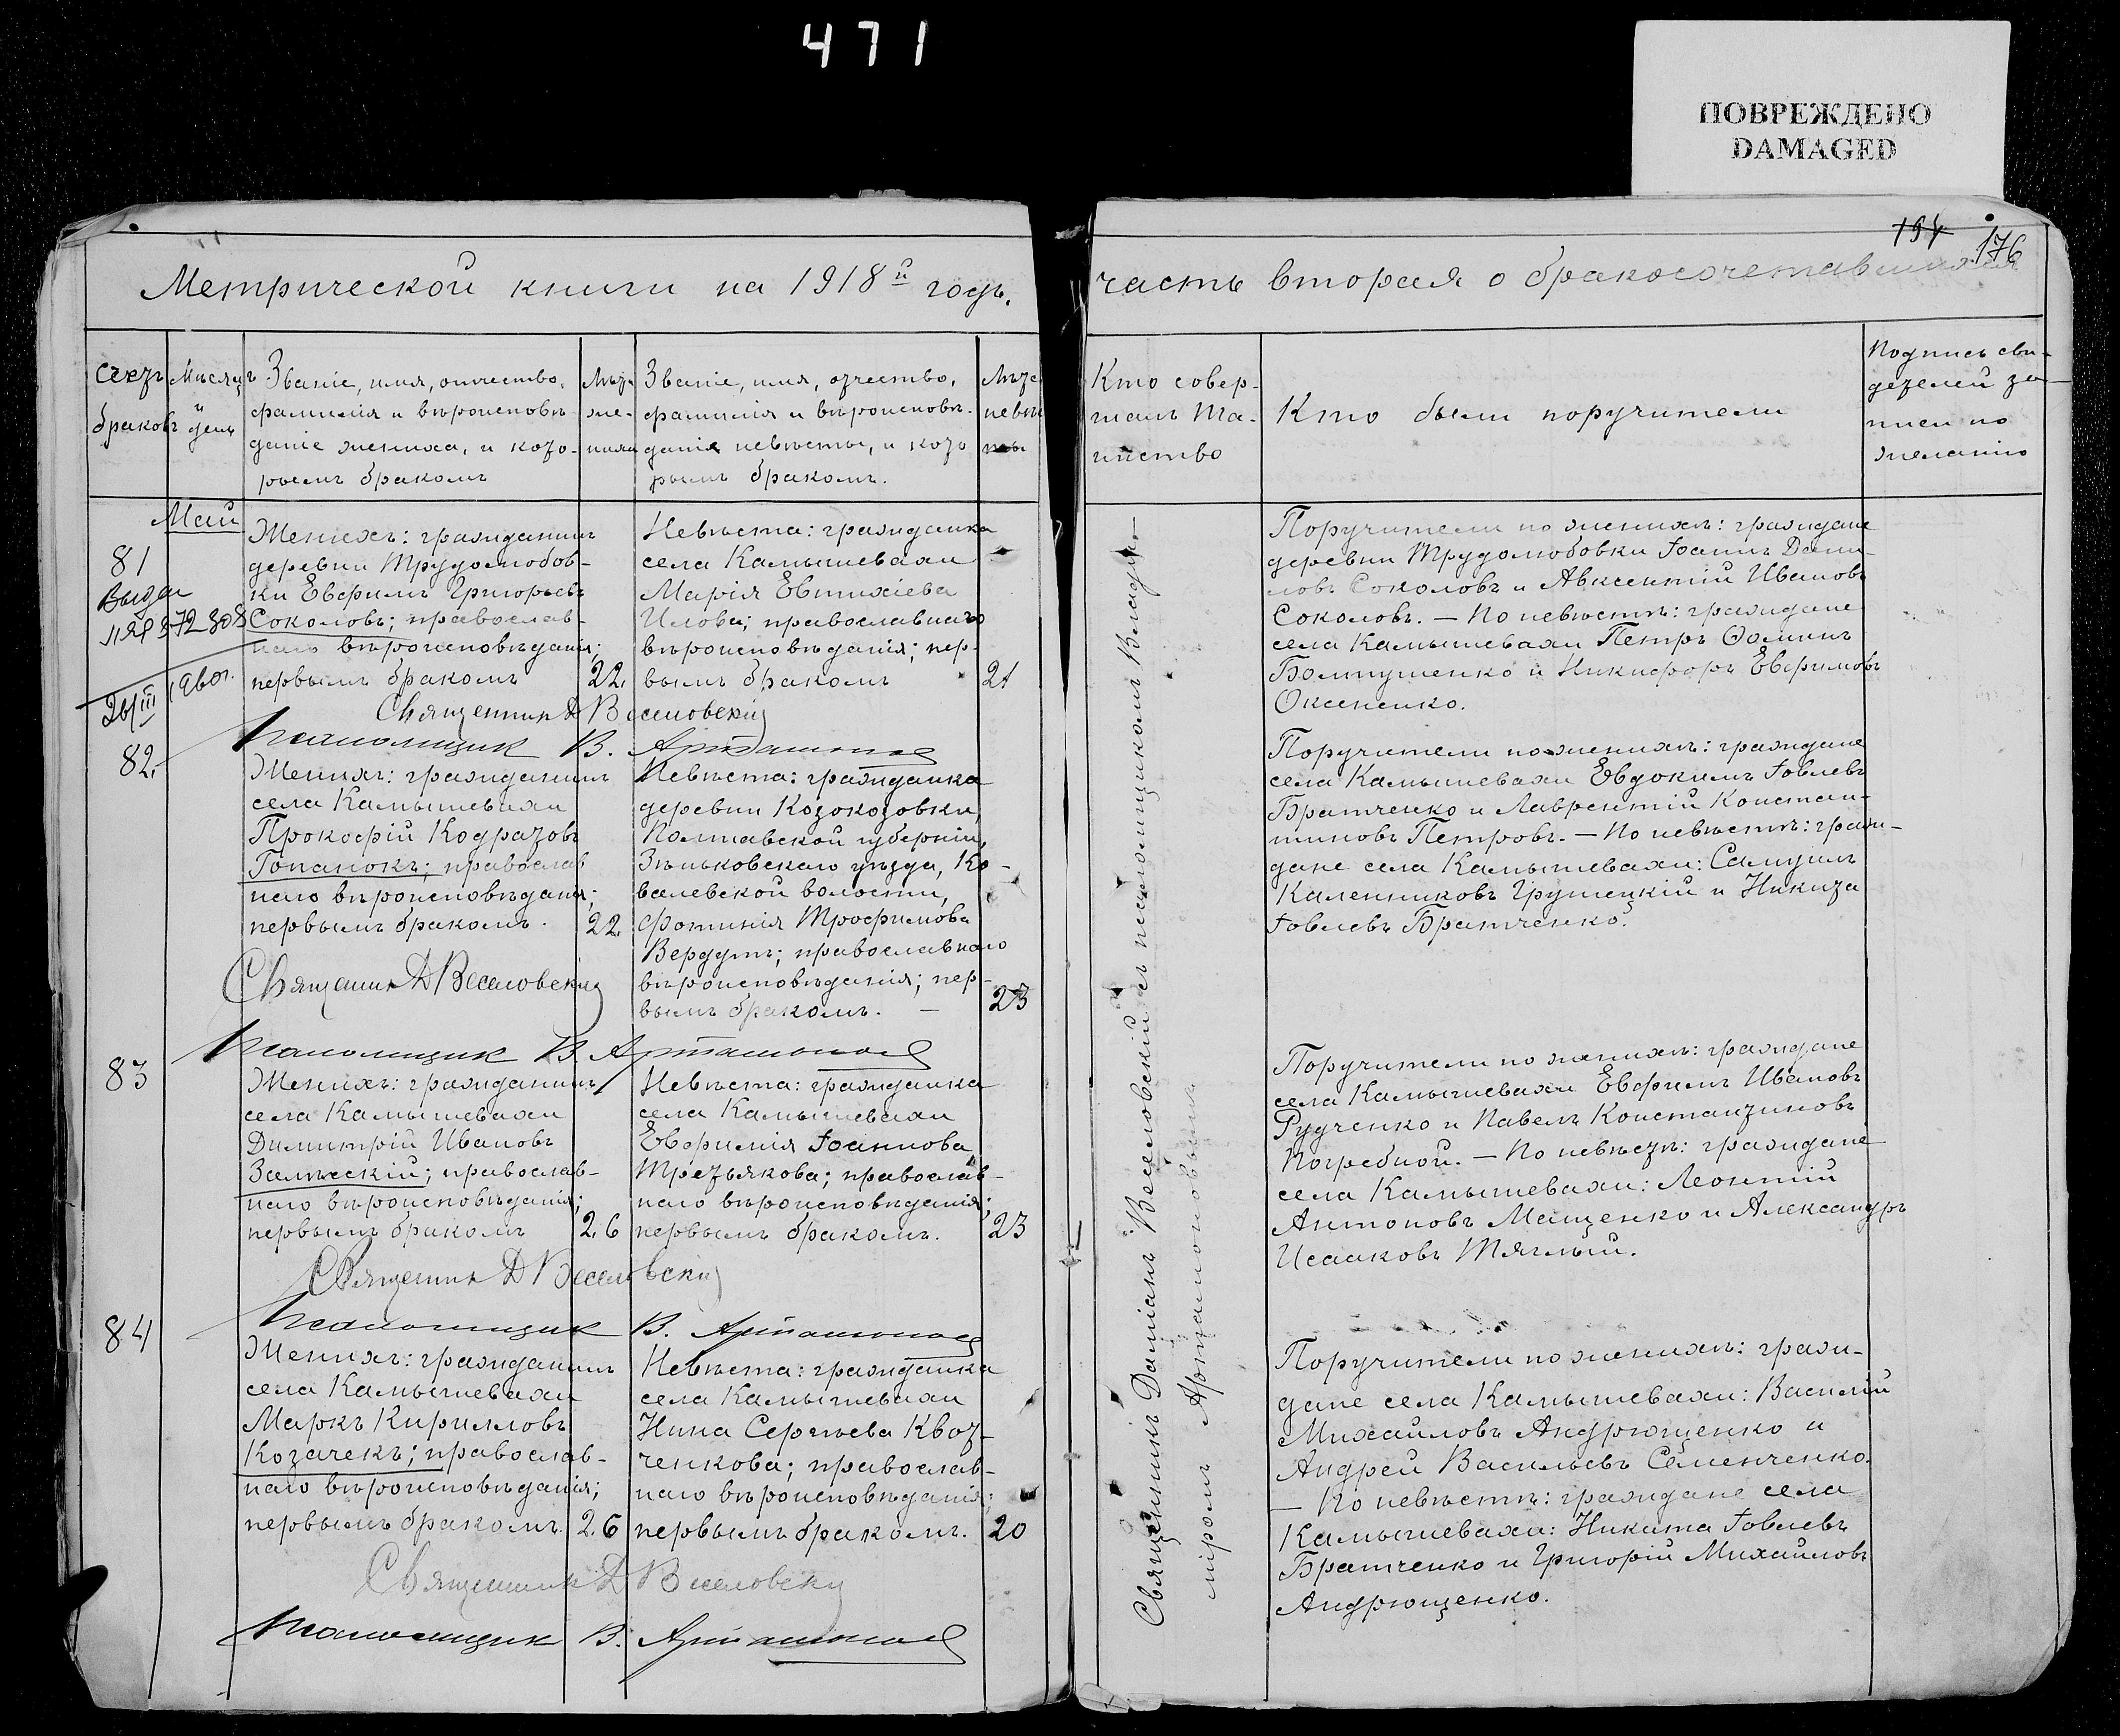 471
ПОВРЕЖДЕНО
DAMAGED
194
176
Метрической книги на 1918й годъ.
часть вторая о бракосочетавшихся
Счетъ
браковъ
Мѣсяцъ
и
день
Званіе, имя, отчество,
фамилія и вѣроисповѣ-
даніе жениха, и кото-
рымъ бракомъ
Лѣта
же-
ниха
Званіе, имя, отчество,
фамилія и вѣроисповѣ-
даніе невѣсты, и кото
рымъ бракомъ.
Лѣта
невѣс
ты
Кто совер-
шалъ та-
инство
Кто были поручители
Подпись сви-
детелей за-
писи по
желанію
Май
81
Выдан
26/III
Женихъ: гражданинъ
деревни Трудолюбов-
ки Евфимъ Григорьевъ
Соколовъ; православ-
наго вѣроисповѣданія;
первымъ бракомъ
22.
Невѣста: гражданка
села Камышевахи
Марія Евтихіева
Илова; православнаго
вѣроисповѣданія; пер-
вымъ бракомъ
21
Священник Д Веселовскій
Псаломщик В. Артамонов
Поручители по женихѣ: граждане
деревни Трудолюбовки Іоаннъ Дани-
ловъ Соколовъ и Авксентій Ивановъ
Соколовъ. — По невѣстѣ: граждане
села Камышевахи Петръ Ѳоминъ
Болтушенко и Никифоръ Евфимовъ
Оксененко.
82.
Женихъ: гражданинъ
села Камышевахи
Прокофій Кодратовъ
Гопанокъ; православ
наго вѣроисповѣданія;
первымъ бракомъ.
22.
Невѣста: гражданка
деревни Козокозовки,
Полтавской губерніи,
Зѣньковскаго уѣзда, Ко-
валевской волости,
Фотинія Трофимова
Вердутъ; православнаго
вѣроисповѣданія; пер-
вымъ бракомъ. —
23
Священник Д Веселовскій
Псаломщик В. Артамонов
Поручители по женихѣ: граждане
села Камышевахи Евдокимъ Іовлевъ
Братченко и Лаврентій Констан-
тиновъ Петровъ. — По невѣстѣ: граж-
дане села Камышевахи: Самуилъ
Каленниковъ Грушецкій и Никита
Іовлевъ Братченко.
83
Женихъ: гражданинъ
села Камышевахи
Димитрій Ивановъ
Залѣескій; православ-
наго вѣроисповѣданія;
первымъ бракомъ
26
Невѣста: гражданка
села Камышевахи
Евфимія Іоаннова
Третьякова; православ-
наго вѣроисповѣданія;
первымъ бракомъ.
23
Священник Д Веселовскій
Псаломщик В. Артамонов
Поручители по женихѣ: граждане
села Камышевахи Евфимъ Ивановъ
Рудченко и Павелъ Константиновъ
Погребной. — По невѣстѣ: граждане
села Камышевахи: Леонтій
Антоновъ Мащенко и Александръ
Исааковъ Тяглый.
84
Женихъ: гражданинъ
села Камышевахи
Маркъ Кирилловъ
Козачекъ; православ-
наго вѣроисповѣданія;
первымъ бракомъ.
26
Невѣста: гражданка
села Камышевахи
Нина Сергѣева Квот-
ченкова; православ-
наго вѣроисповѣданія;
первымъ бракомъ.
20
Священник Д Веселовскій
Псаломщик В. Артамонов
Поручители по женихѣ: граж-
дане села Камышевахи: Василій
Михайловъ Андрющенко и
Андрей Васильевъ Семенченко.
— По невѣстѣ: граждане села
Камышевахи: Никита Іовлевъ
Братченко и Григорій Михайловъ
Андрющенко.
Священникъ Даміанъ Веселовскій съ псаломщикомъ Влади-
міромъ Артамоновымъ